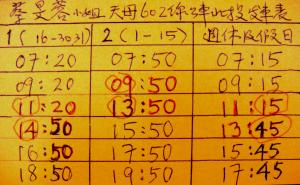 蔡旻蓉小姐 天母602班次北投發車表
1(16-30.31) 2(1-15) 週休及假日
07:20 07:50 07:15
09:20 09:50 09:15
11:20 13:50 11:15
14:50 15:50 13:45
16:50 17:50 15:45
18:50 19:50 17:45